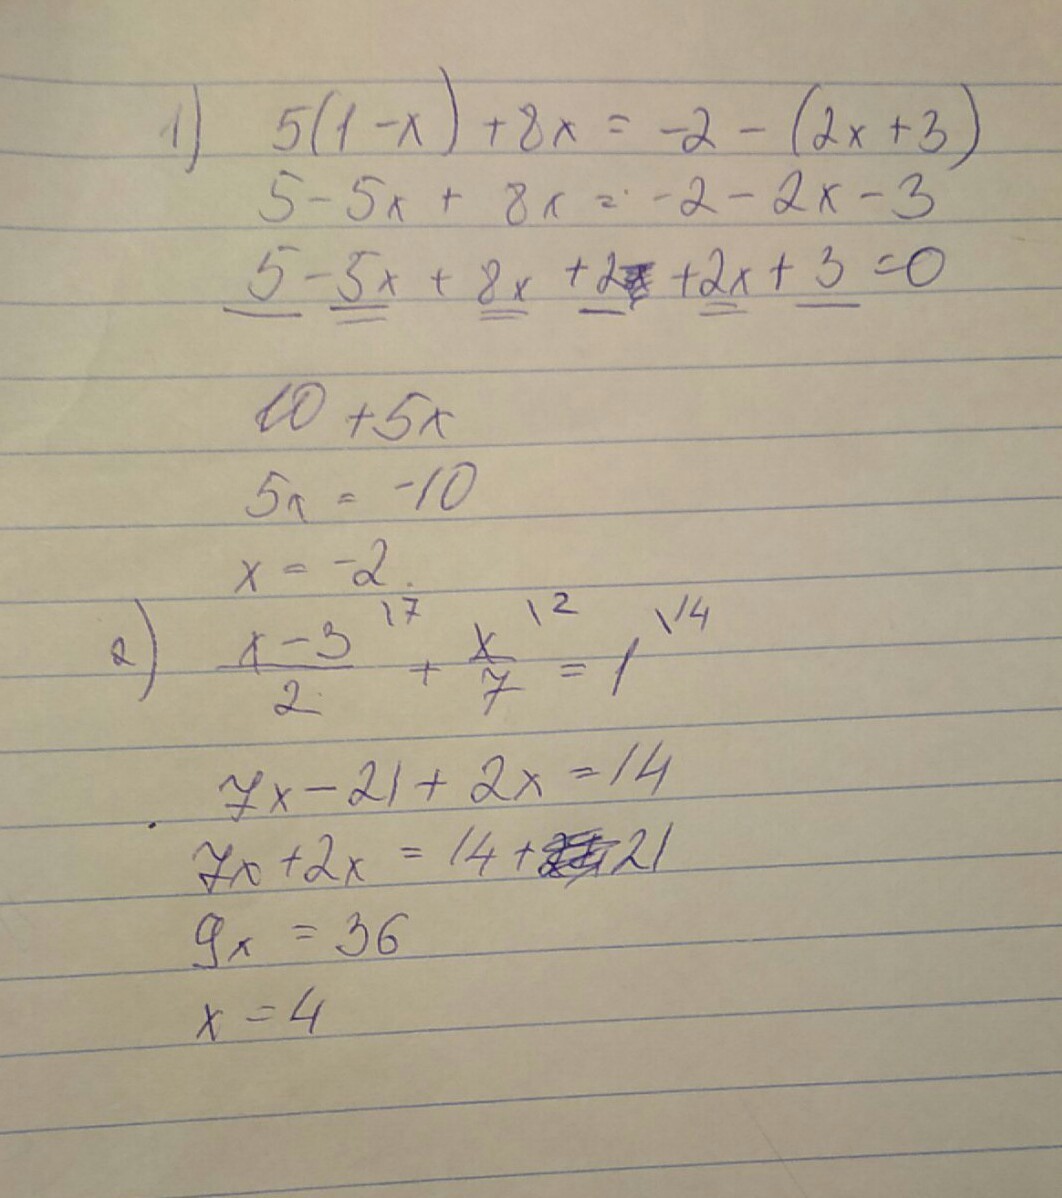 1) 5(1-x) +8x = -2 - (2x+3)
5-5x + 8x = -2-2x-3
5-5x + 8x +2 +2x+3 =0
10 +5x
5x = -10
x = -2.
2) (x-3)/2 \7 + x/7 \2 = 1 \14
7x-21+2x =14
7x+2x = 14+21
9x = 36
x =4